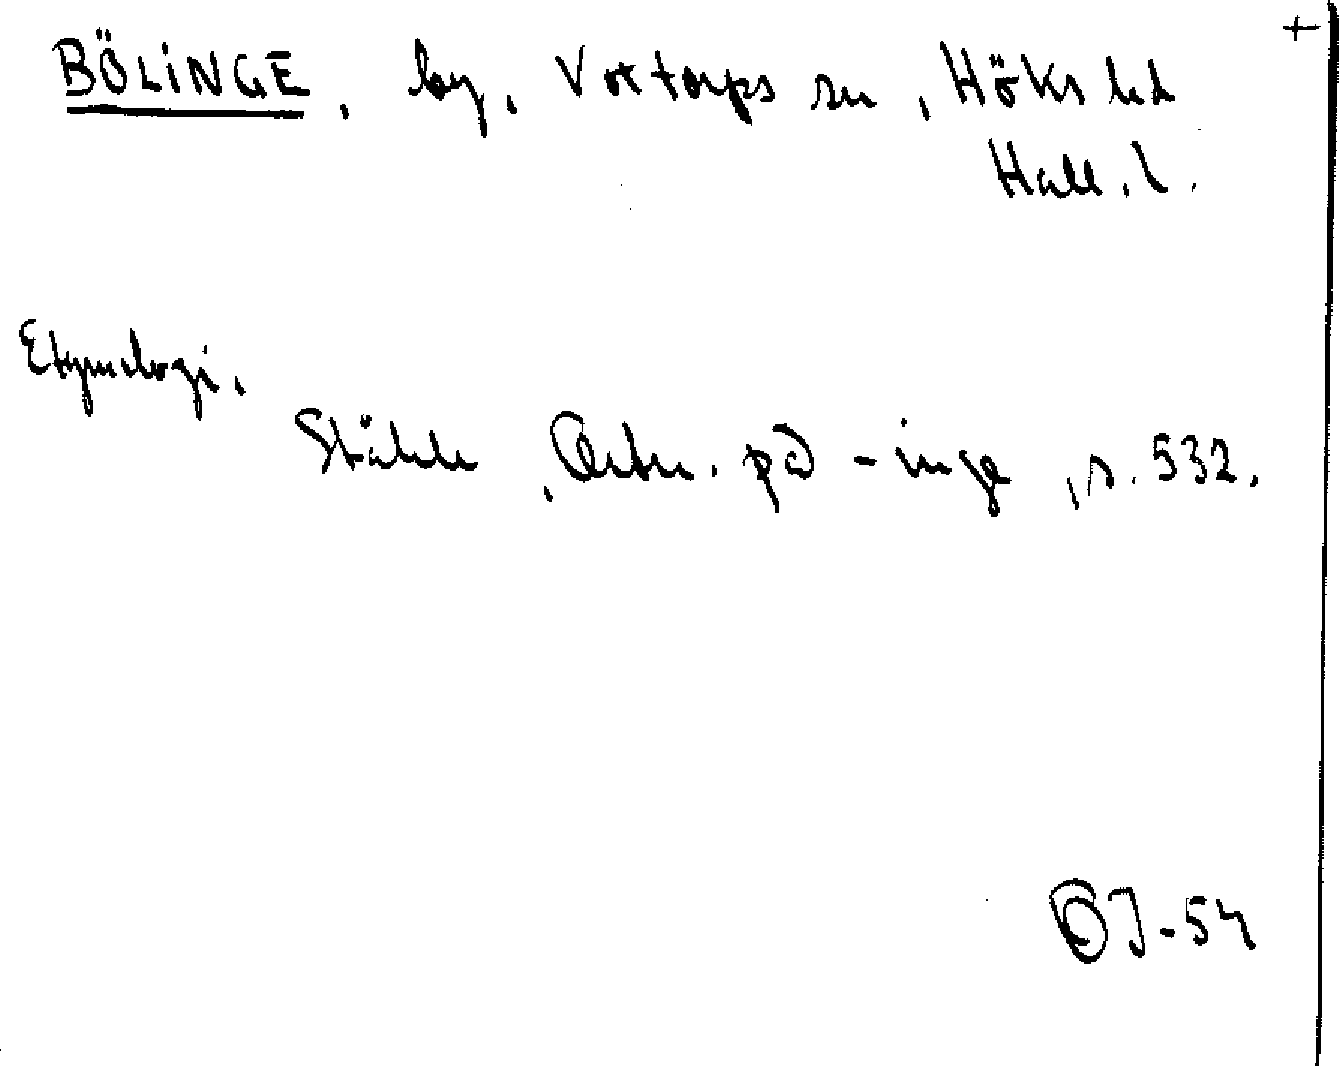 +
BÖLINGE, by, Voxtorps sn, Höks hd
Hall. l.
Etymologi.
Ståhle, Ortn. på -inge, s. 532.
OJ-54